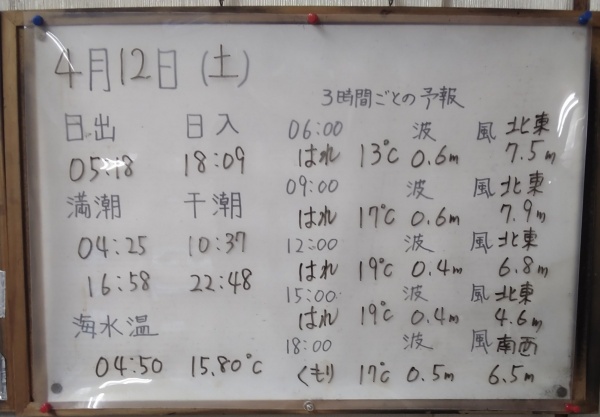 4月12日(土)
日出 日入
05:18 18:09
満潮 干潮
04:25 10:37
16:58 22:48
海水温
04:50 15.80℃
3時間ごとの予報
06:00 波 風 北東
はれ 13℃ 0.6m 7.5m
09:00 波 風 北東
はれ 17℃ 0.6m 7.9m
12:00 波 風 北東
はれ 19℃ 0.4m 6.8m
15:00 波 風 北東
はれ 19℃ 0.4m 4.6m
18:00 波 風 南西
くもり 17℃ 0.5m 6.5m